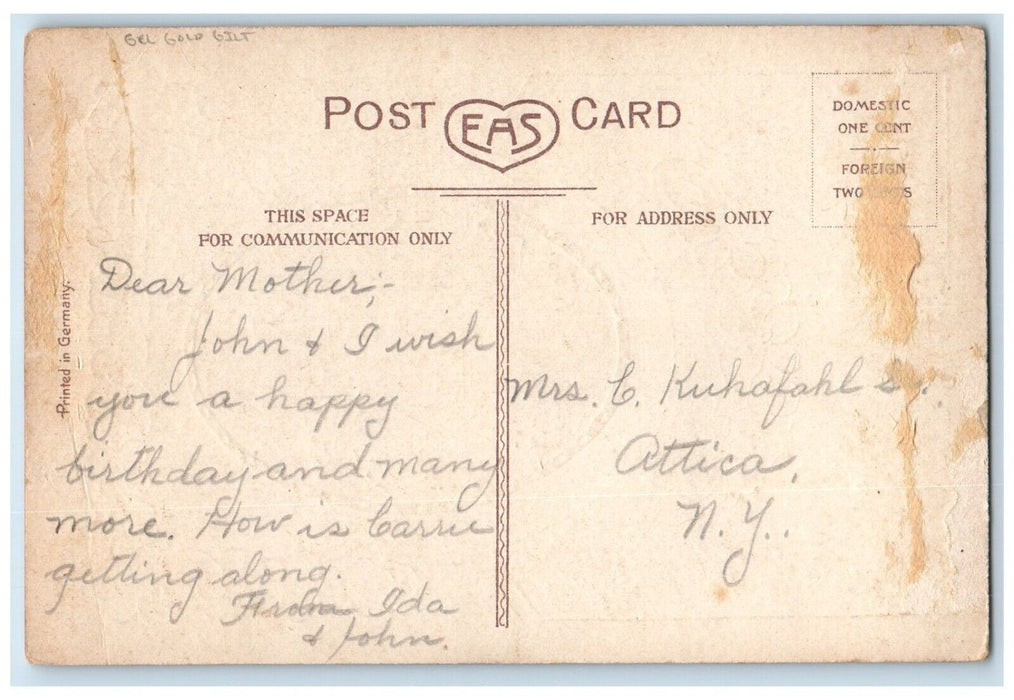 GEL GOLD GILT
POST EAS CARD
DOMESTIC
ONE CENT
FOREIGN
TWO CENTS
THIS SPACE
FOR COMMUNICATION ONLY
FOR ADDRESS ONLY
Printed in Germany.
Dear Mother;-
John & I wish
you a happy
birthday and many
more. How is Carrie
getting along.
From Ida
& John.
Mrs. C. Kuhafahl
Attica,
N.Y..